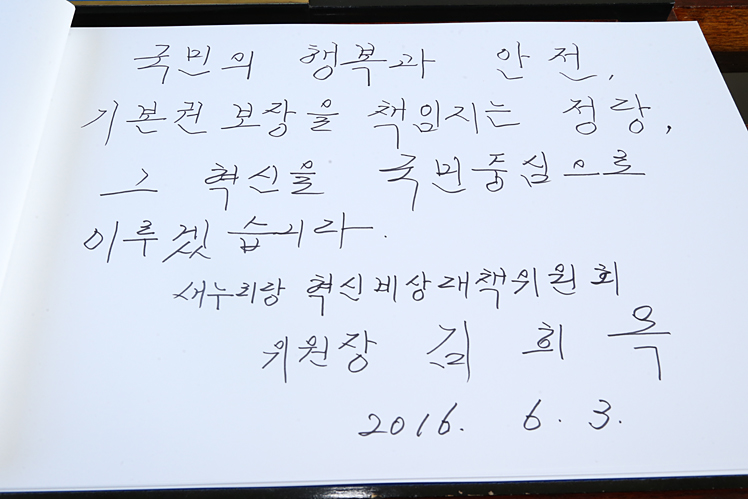 국민의 행복과 안전,
기본권 보장을 책임지는 정당,
그 혁신을 국민중심으로
이루겠습니다.
새누리당 혁신비상대책위원회
위원장 김희옥
2016. 6. 3.